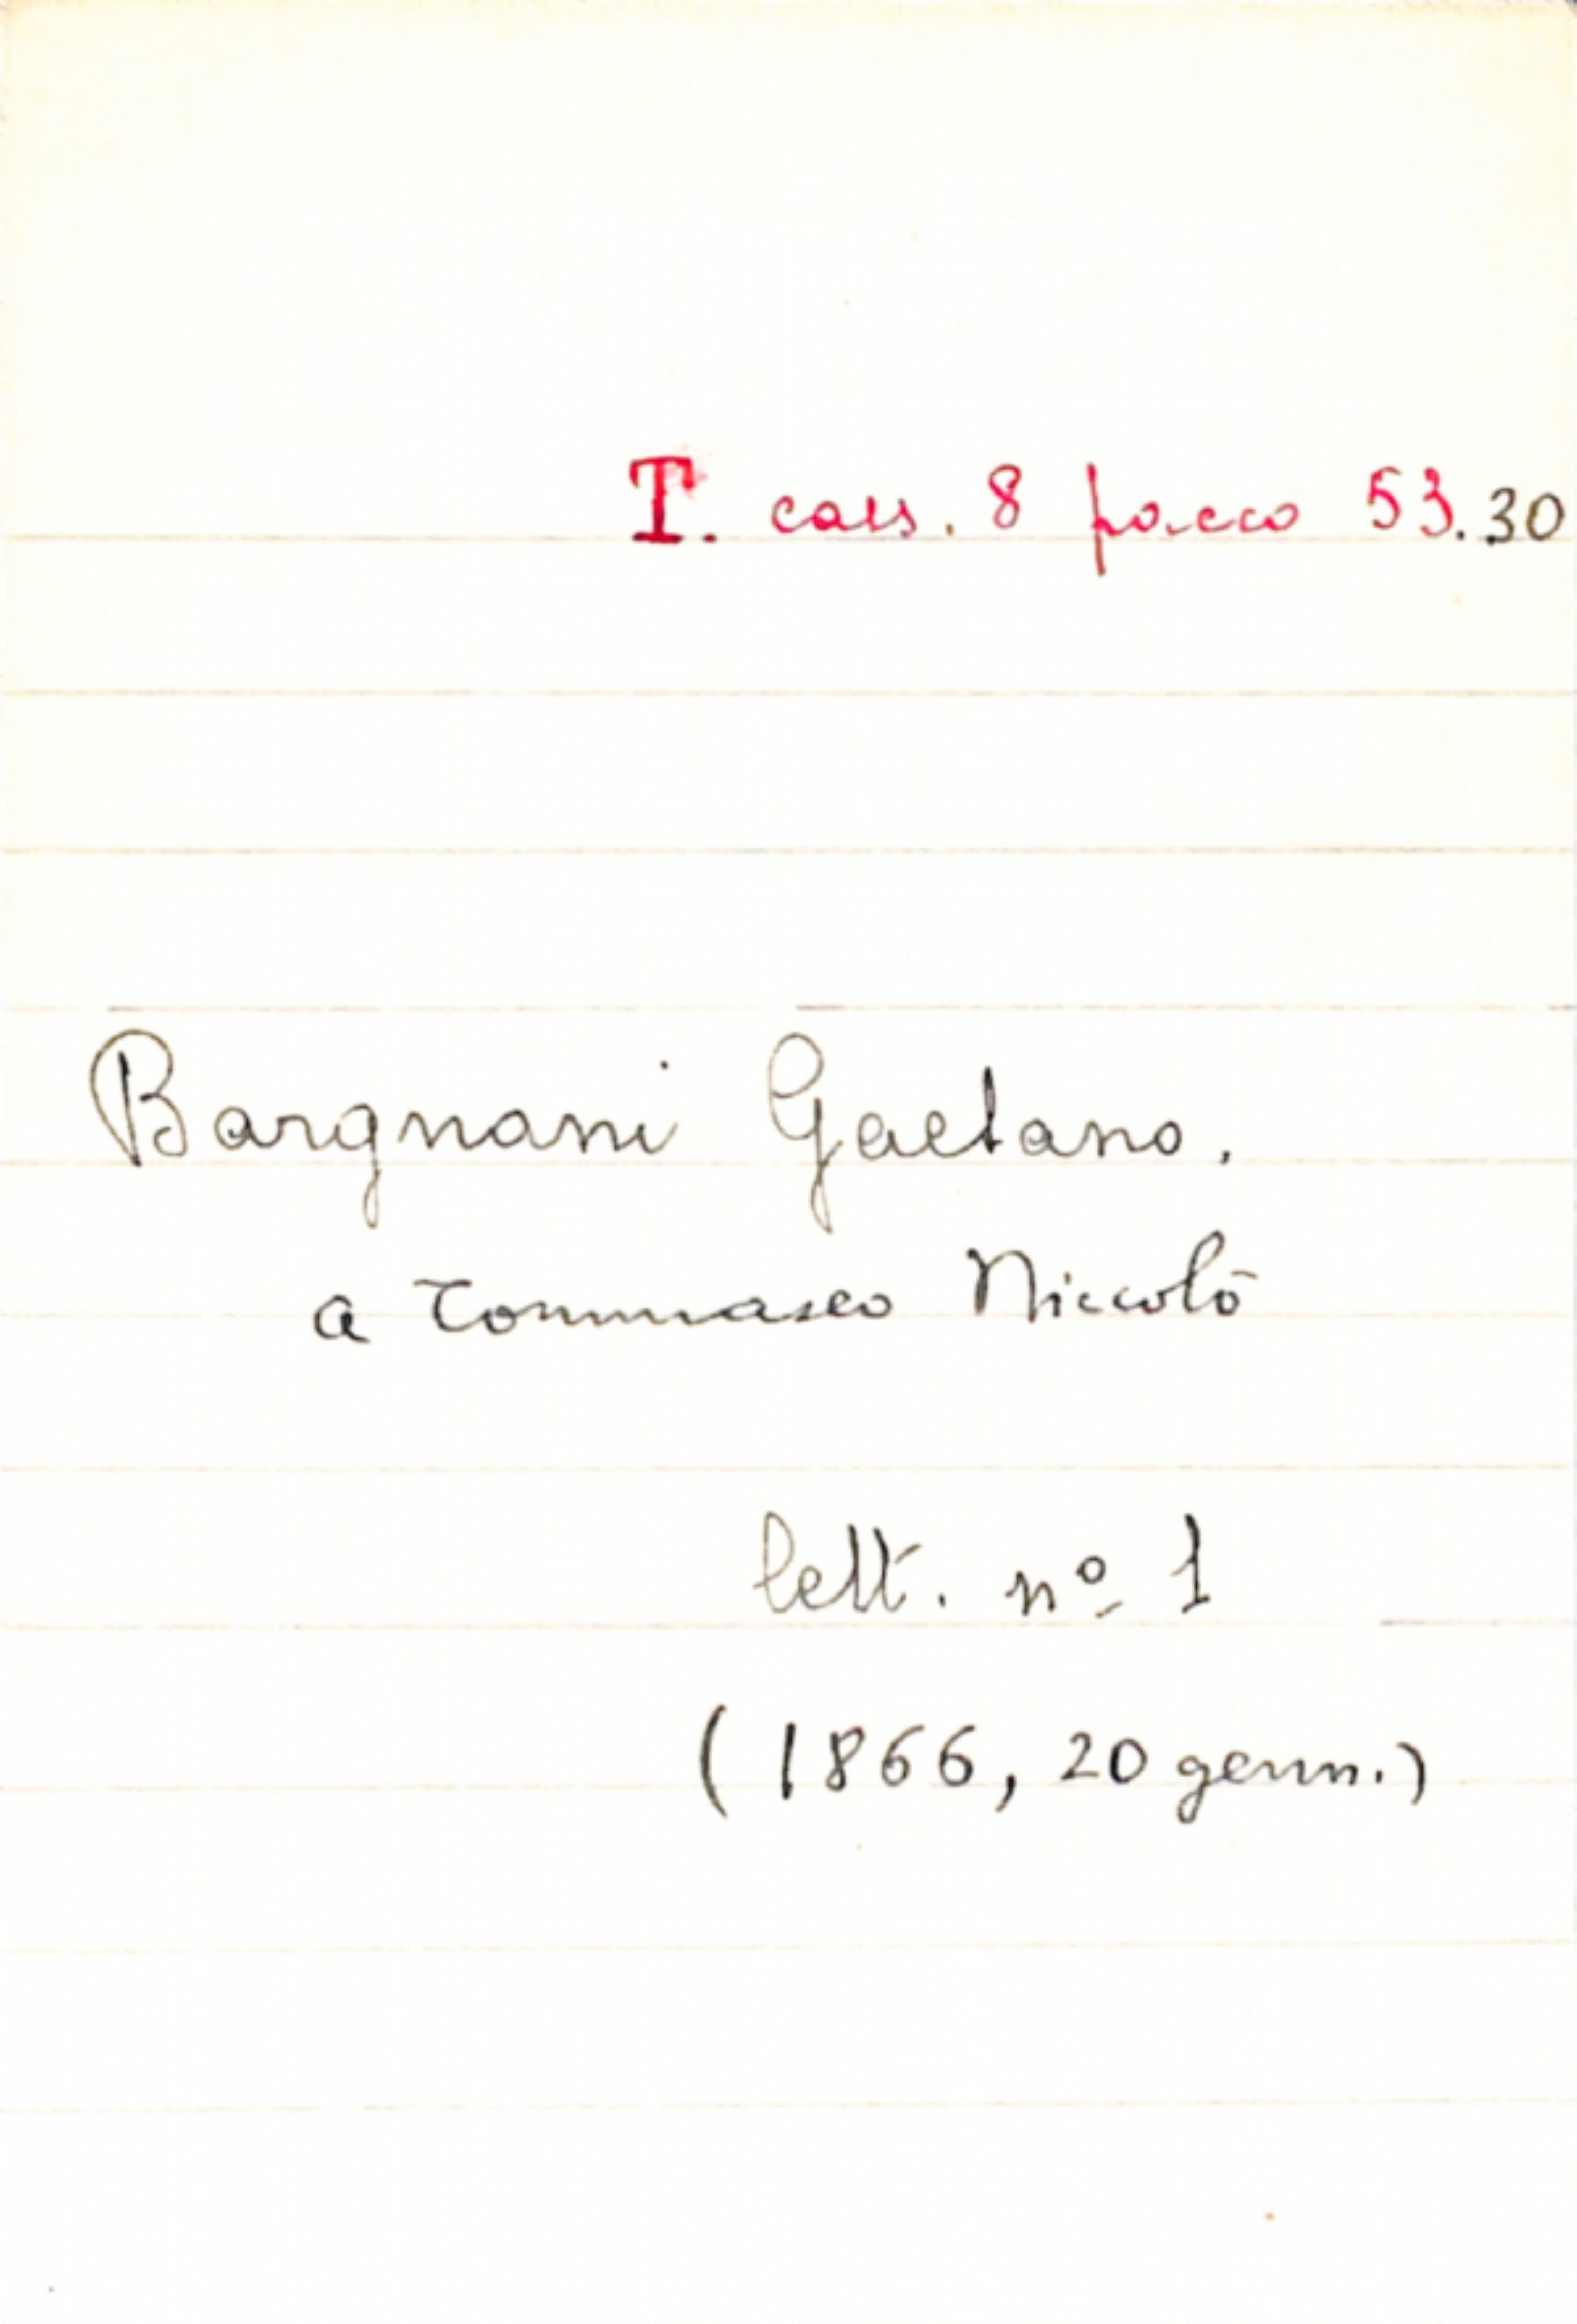 T. cass. 8 pacco 53.30
Bargnani Gaetano.
a Tommaseo Niccolò
lett. nº 1
(1866, 20 genn.)